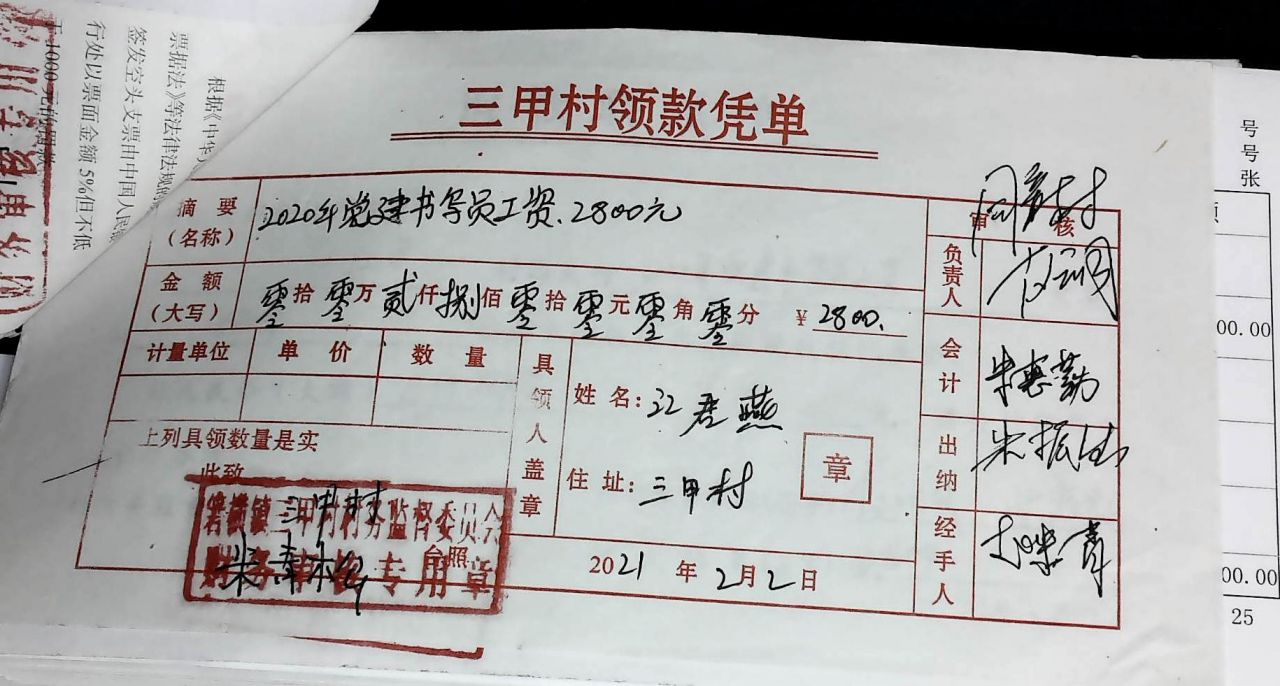 三甲村领款凭单
摘要
（名称）
2020年党建书写员工资.2800元
审核
金额
（大写）
零拾零万贰仟捌佰零拾零元零角零分 ￥2800.
负责人
计量单位 单价 数量
具领人盖章
姓名：江君燕
住址：三甲村
章
会计
朱惠勤
出纳
经手人
上列具领数量是实
此致
三甲村
台照
三甲村村务监督委员会
财务审核专用章
2021年2月2日
根据《中华
票据法》等法律法规的
签发空头支票由中国人民
行处以票面金额5%但不低
于1000元的
号
号
张
00.00
00.00
25